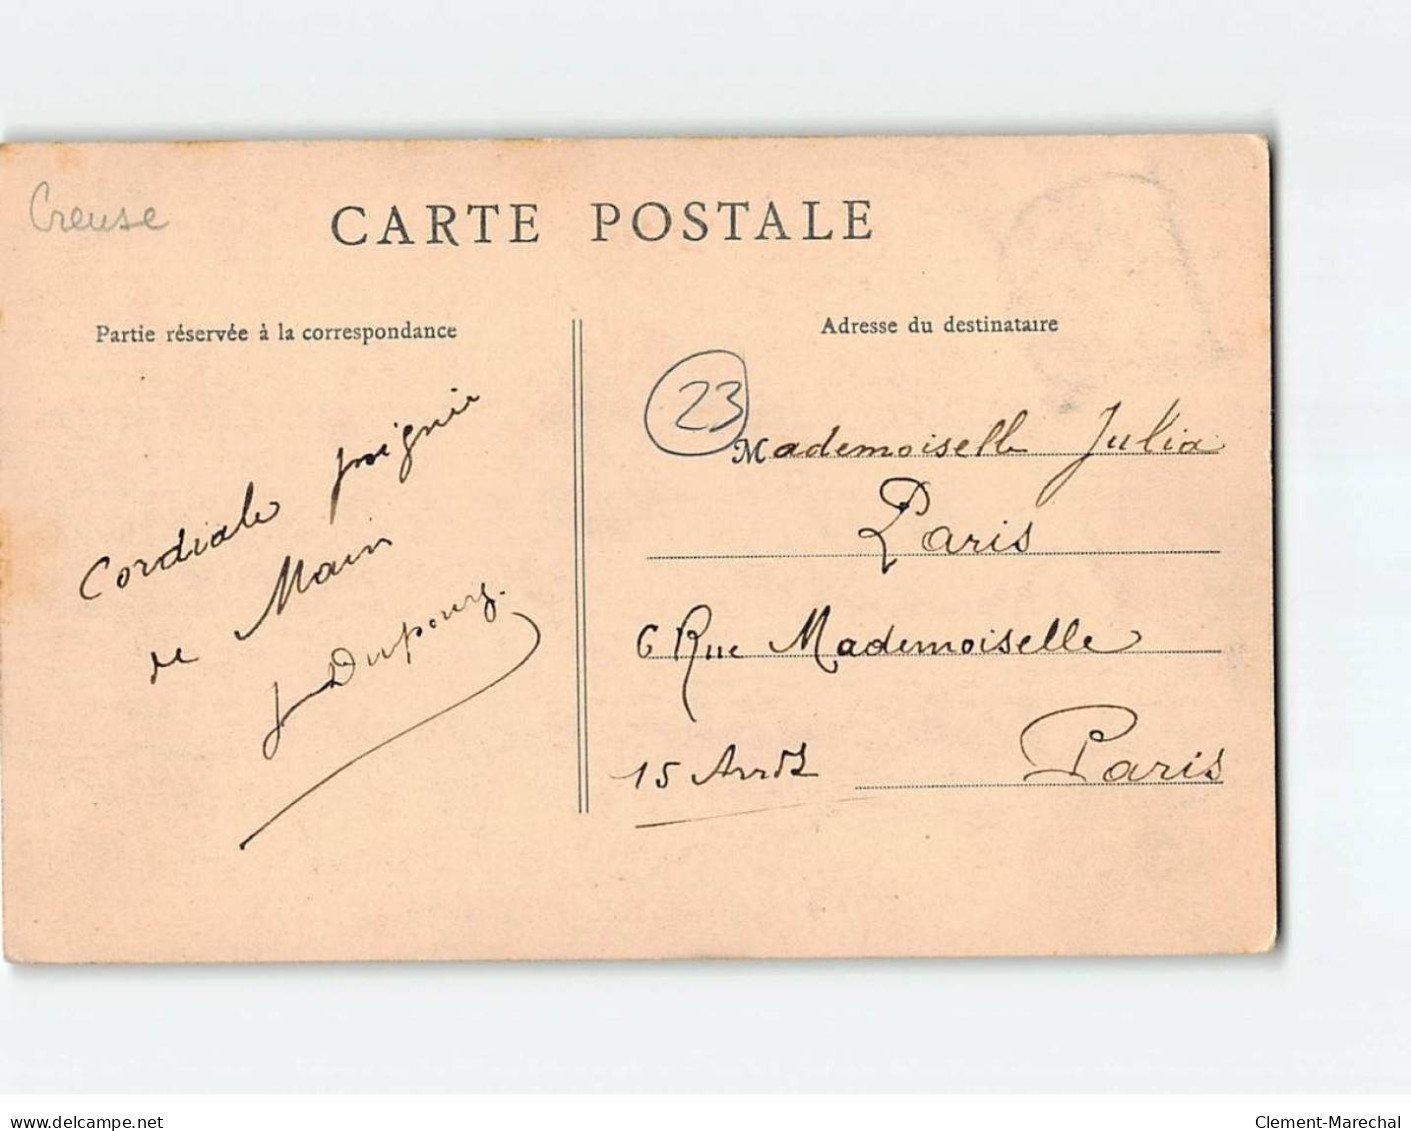 Creuse
CARTE POSTALE
Partie réservée à la correspondance
Cordiale poignée
de Main
J Dupourq.
Adresse du destinataire
23
Mademoiselle Julia
Paris
6 Rue Mademoiselle
15 Arrdt
Paris
www.delcampe.net
Clement-Marechal